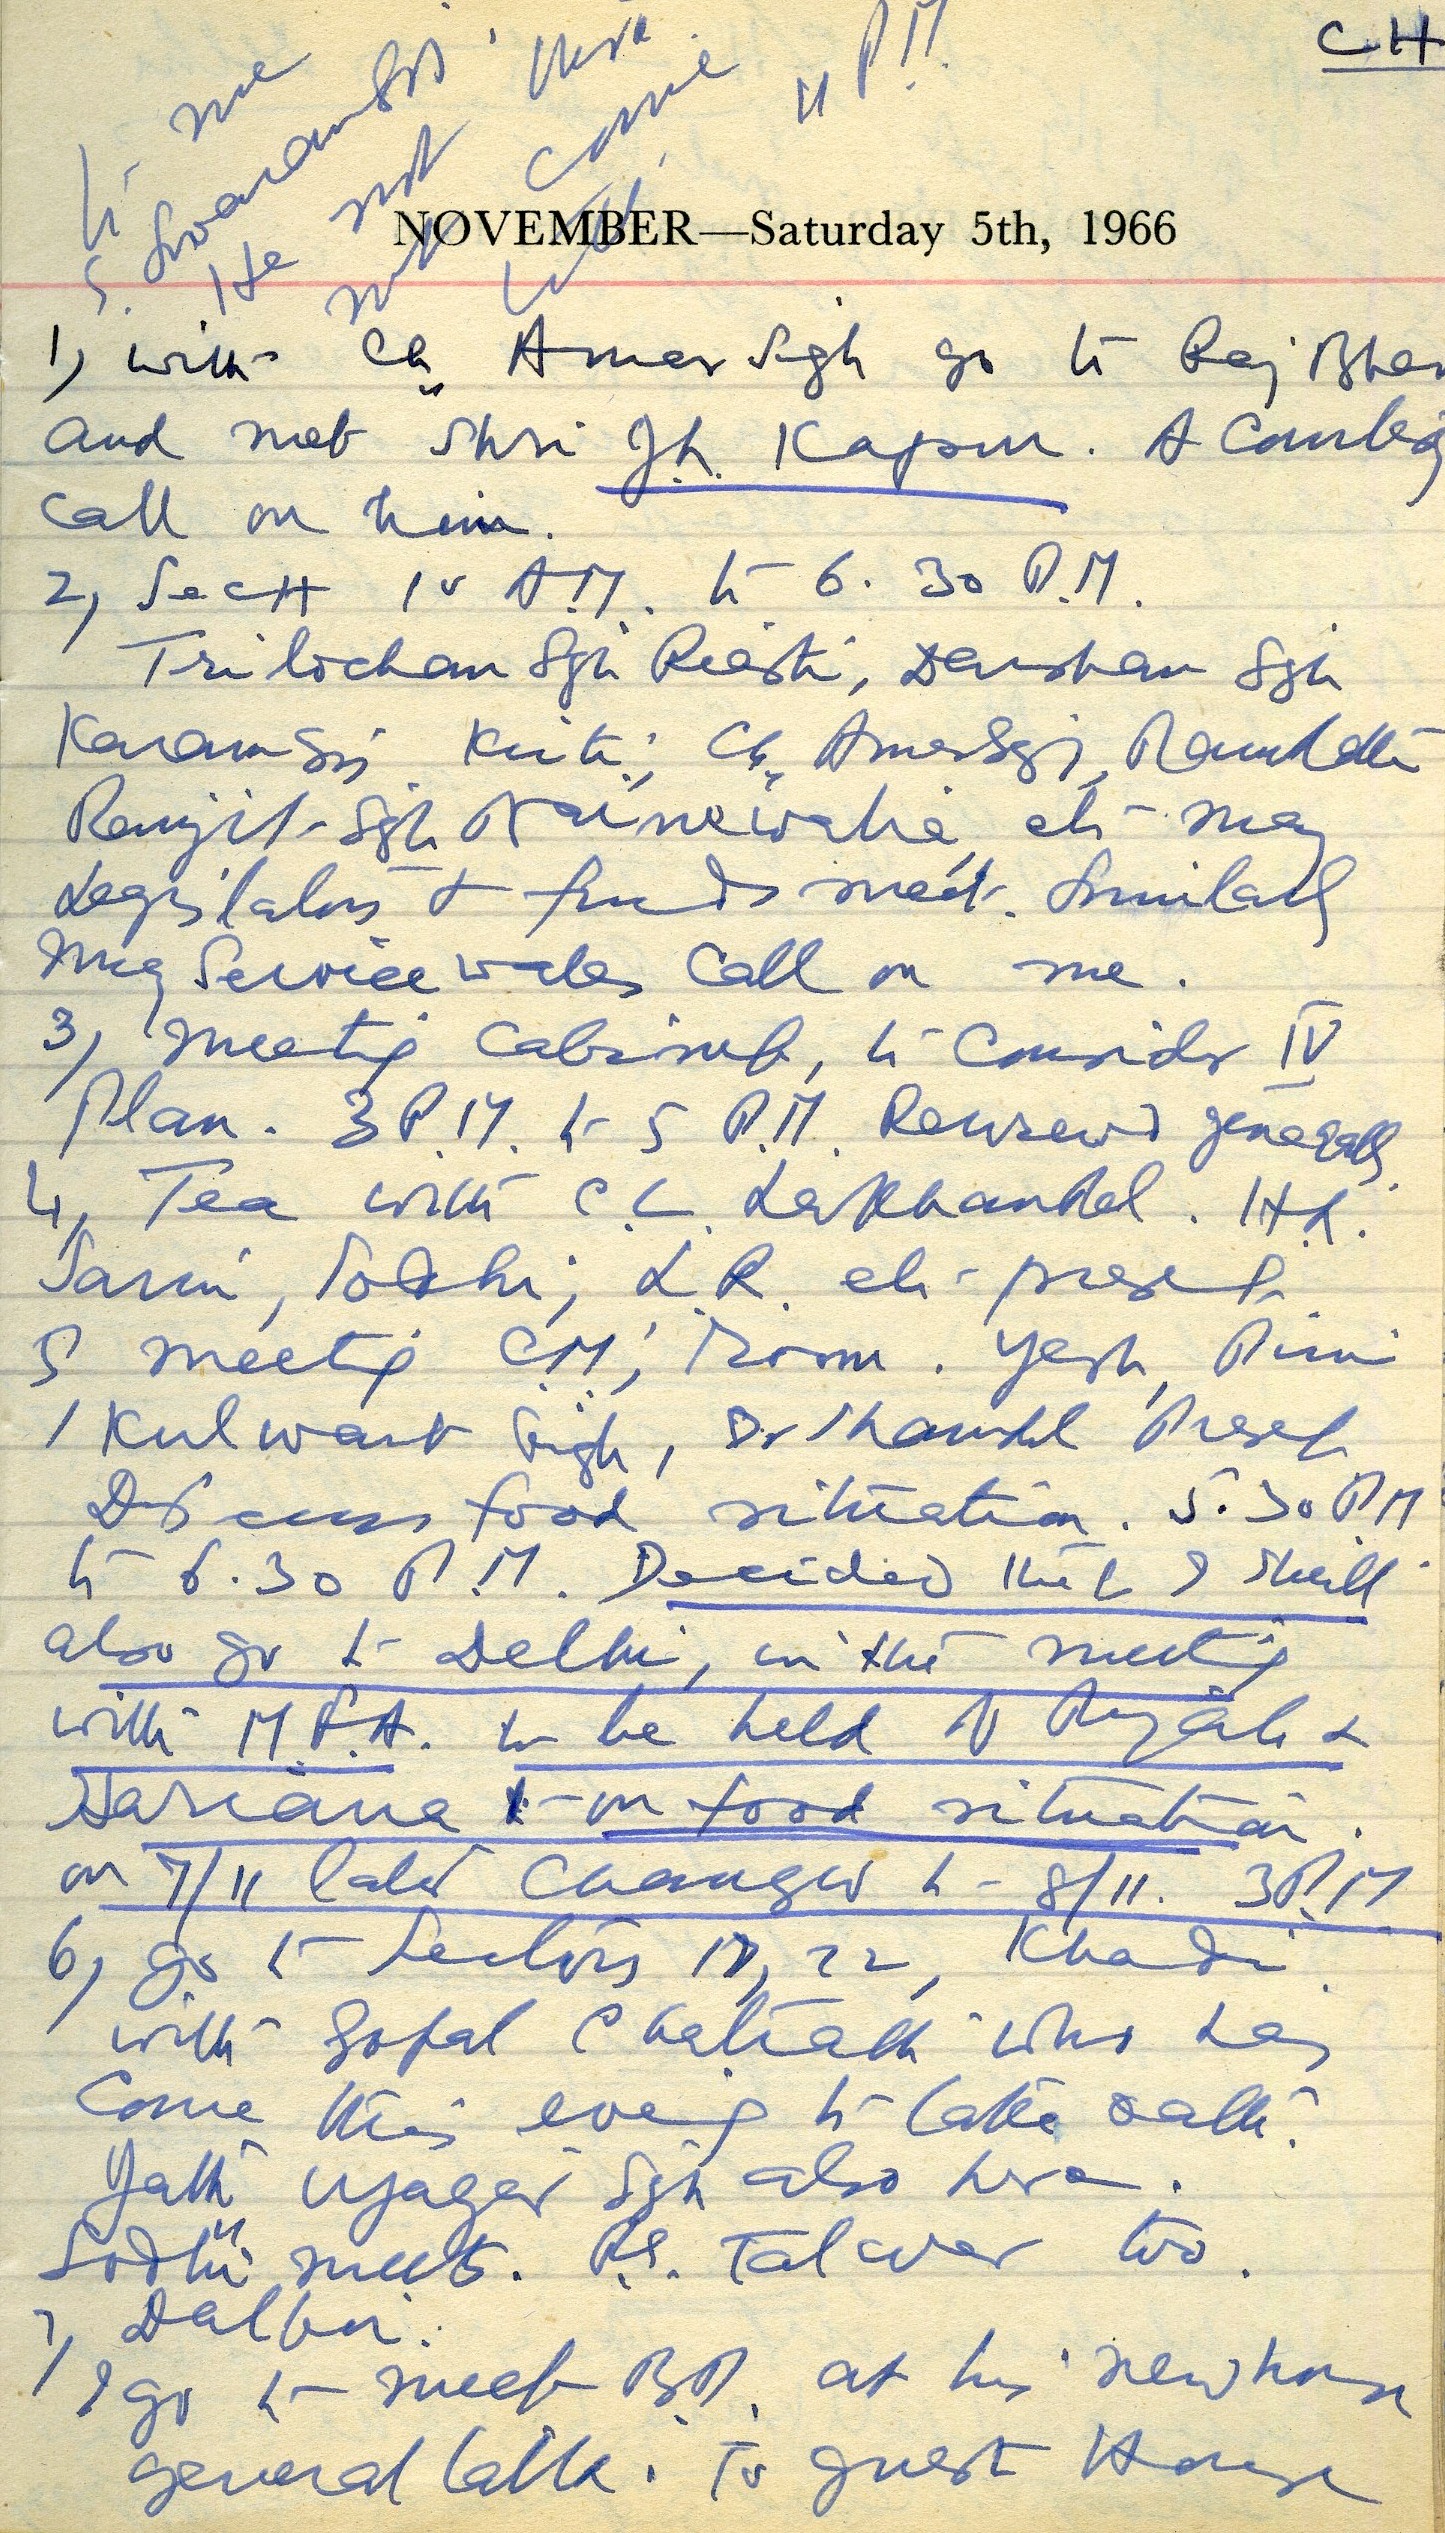 CH
to me
S. Swaran Sgh's
He not come
11 P.M.
NOVEMBER—Saturday 5th, 1966
1, with Ch Amar Sigh go to Raj Bhan
and met Shri J.L. Kapur. A
call on him.
2, Sectt 10 A.M. to 6.30 P.M.
Trilochan Sgh Riasti, Darshan Sgh
Karam Sgh Kirti, Ch Amar Sgh,
Ranjit Sgh Nainewalia, etc many
Legislators & friends meet. Similarly
many Service walas call on me.
3, Meeting Cabinet, to consider IV
Plan. 3 P.M. to 5 P.M. Reviewed generally.
4, Tea with C.L. Lakhanpal. H.L.
Sarin, Sodhi, L.R. etc present.
5 Meeting CM's Room. Yash, Rim
Kulwant Sigh, Present
Discuss food situation. 5.30 PM
to 6.30 P.M. Decided that I shall
also go to Delhi, in the meeting
with M.F.A. to be held of Punjab &
Hariana on food situation.
on 7/11 later changed to 8/11. 3 P.M
6, go to Sectors 17, 22, Khadi
with Gopal who has
come this evening to
Ujagar Sgh also here.
Sodhi meets. P.S. Talwar too.
7, Dalbir.
I go to meet B.D. at his new house
general talk. To Guest House